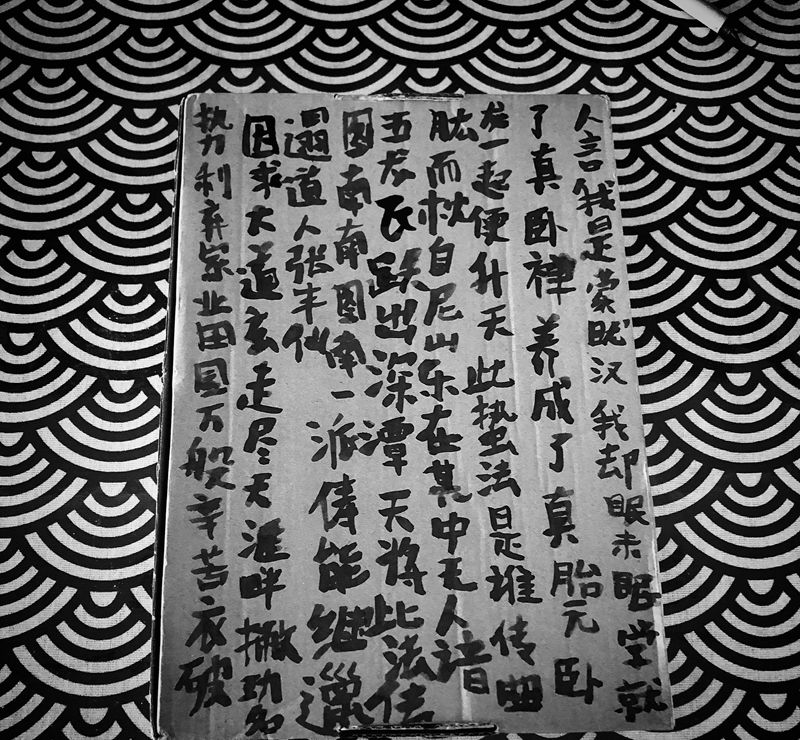 人言我是蒙眬汉我却眠未眠学就
了真卧禅养成了真胎元卧
龙一起便升天此蛰法是谁传曲
肱而枕自尼山乐在其中无人谙
五龙氏跃出深潭天将此法传
图南南图南一派俦能继邋
遢道人张丰仙
因求大道玄走尽天涯畔撇功名
势利弃家业田园万般辛苦衣破